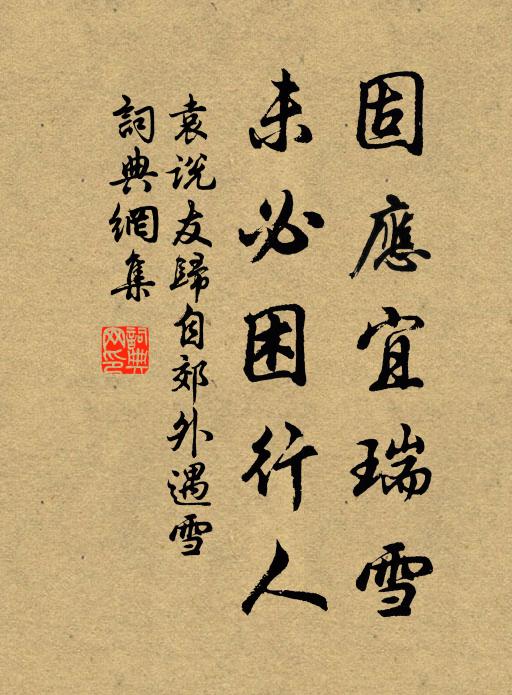 固應宜瑞雪
未必困行人
袁說友歸自郊外遇雪
詞典網集
詞典
网印